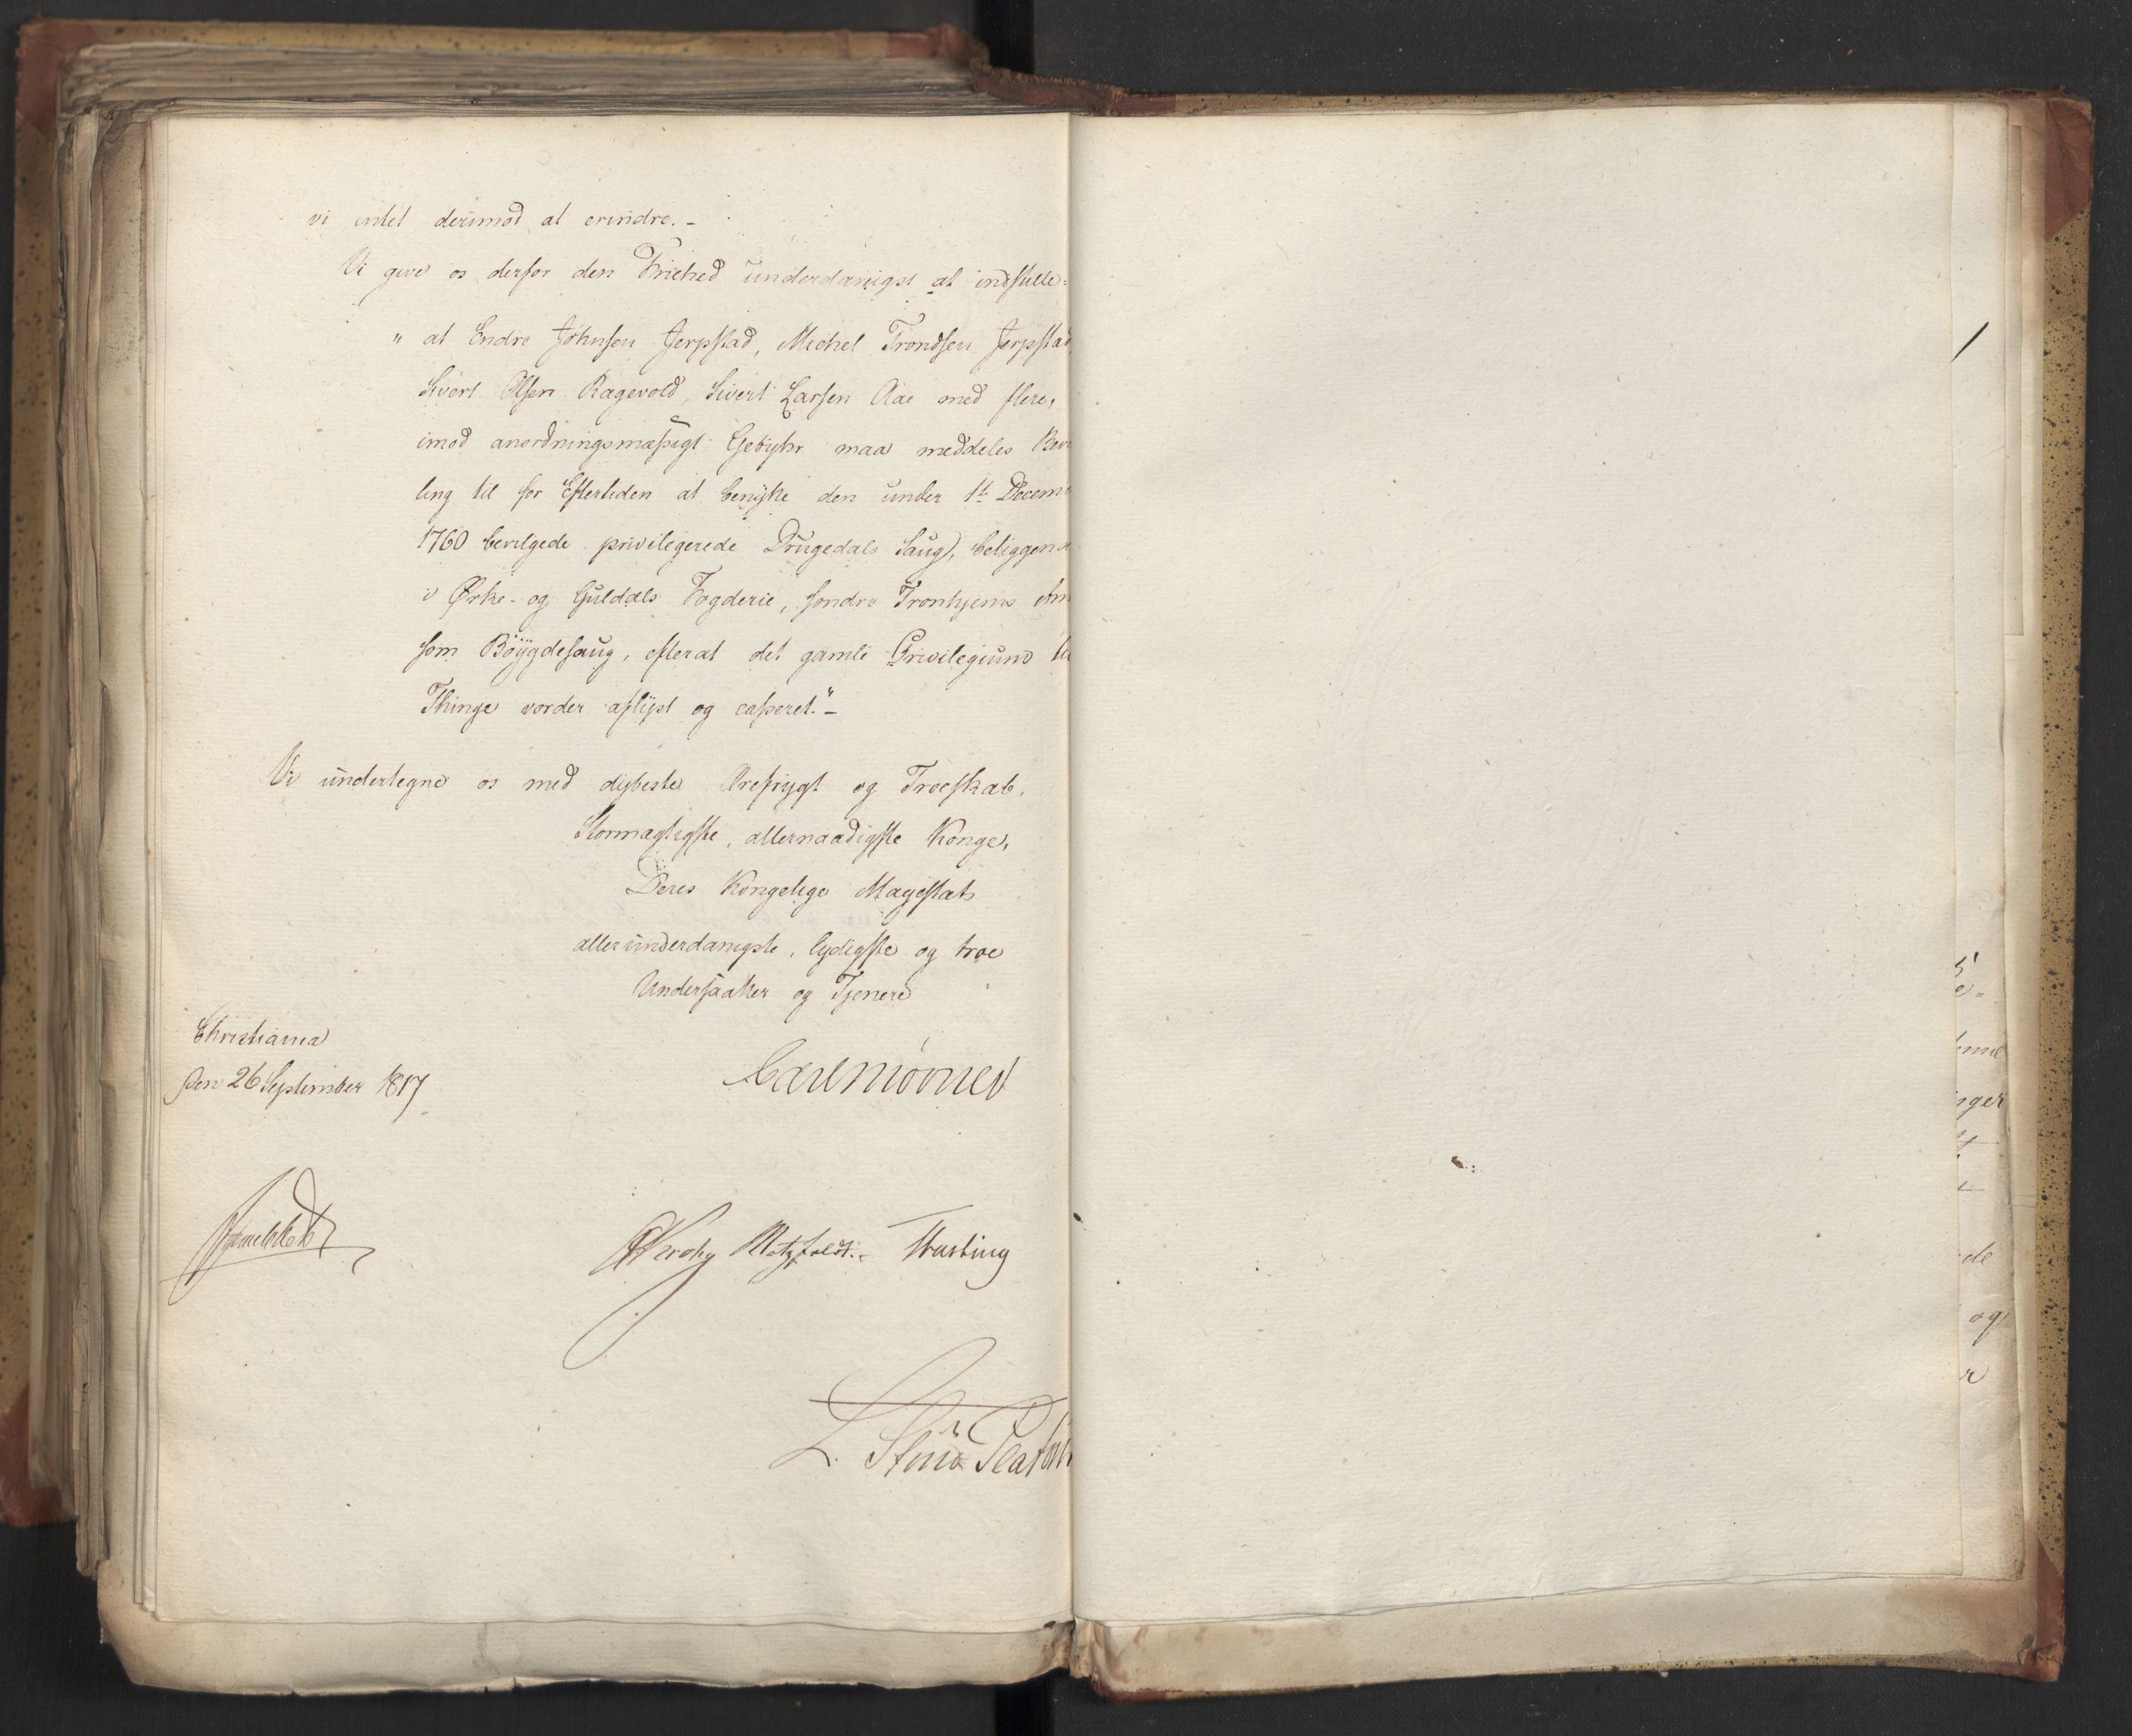 vi intet derimod at erindre. –
Vi give os derfor den Friehed underdanigst at indstille:
" at Endre Johnsen Jerpstad, Michel Trondsen Jerpstad
Sivert Olsen Ragevold, Sivert Larsen Aae med flere,
imod anordningsmæssigt Gebyhr maa meddeles Bevil
ling til for Eftertiden at benytte den under 1t Decemb
1760 bevilgede privilegerede Drugedals Saug, beliggend
i Ørke- og Guldals Fogderie, søndre Tronhjems Am
som Bøygdesaug, efterat det gamle Privilegium til
Thinge vorder aflyst og casseret." –
Vi undertegne os med dybeste Ærefrygt og Troeskab.
Stormægtigste, allernaadigste Konge,
Deres Kongelige Majestæts
allerunderdanigste, lydigste og troe
Undersaatter og Tjenere
Christiania
den 26 September 1817
Carl Mörner
Motzfeldt. Hasting
1
og
de